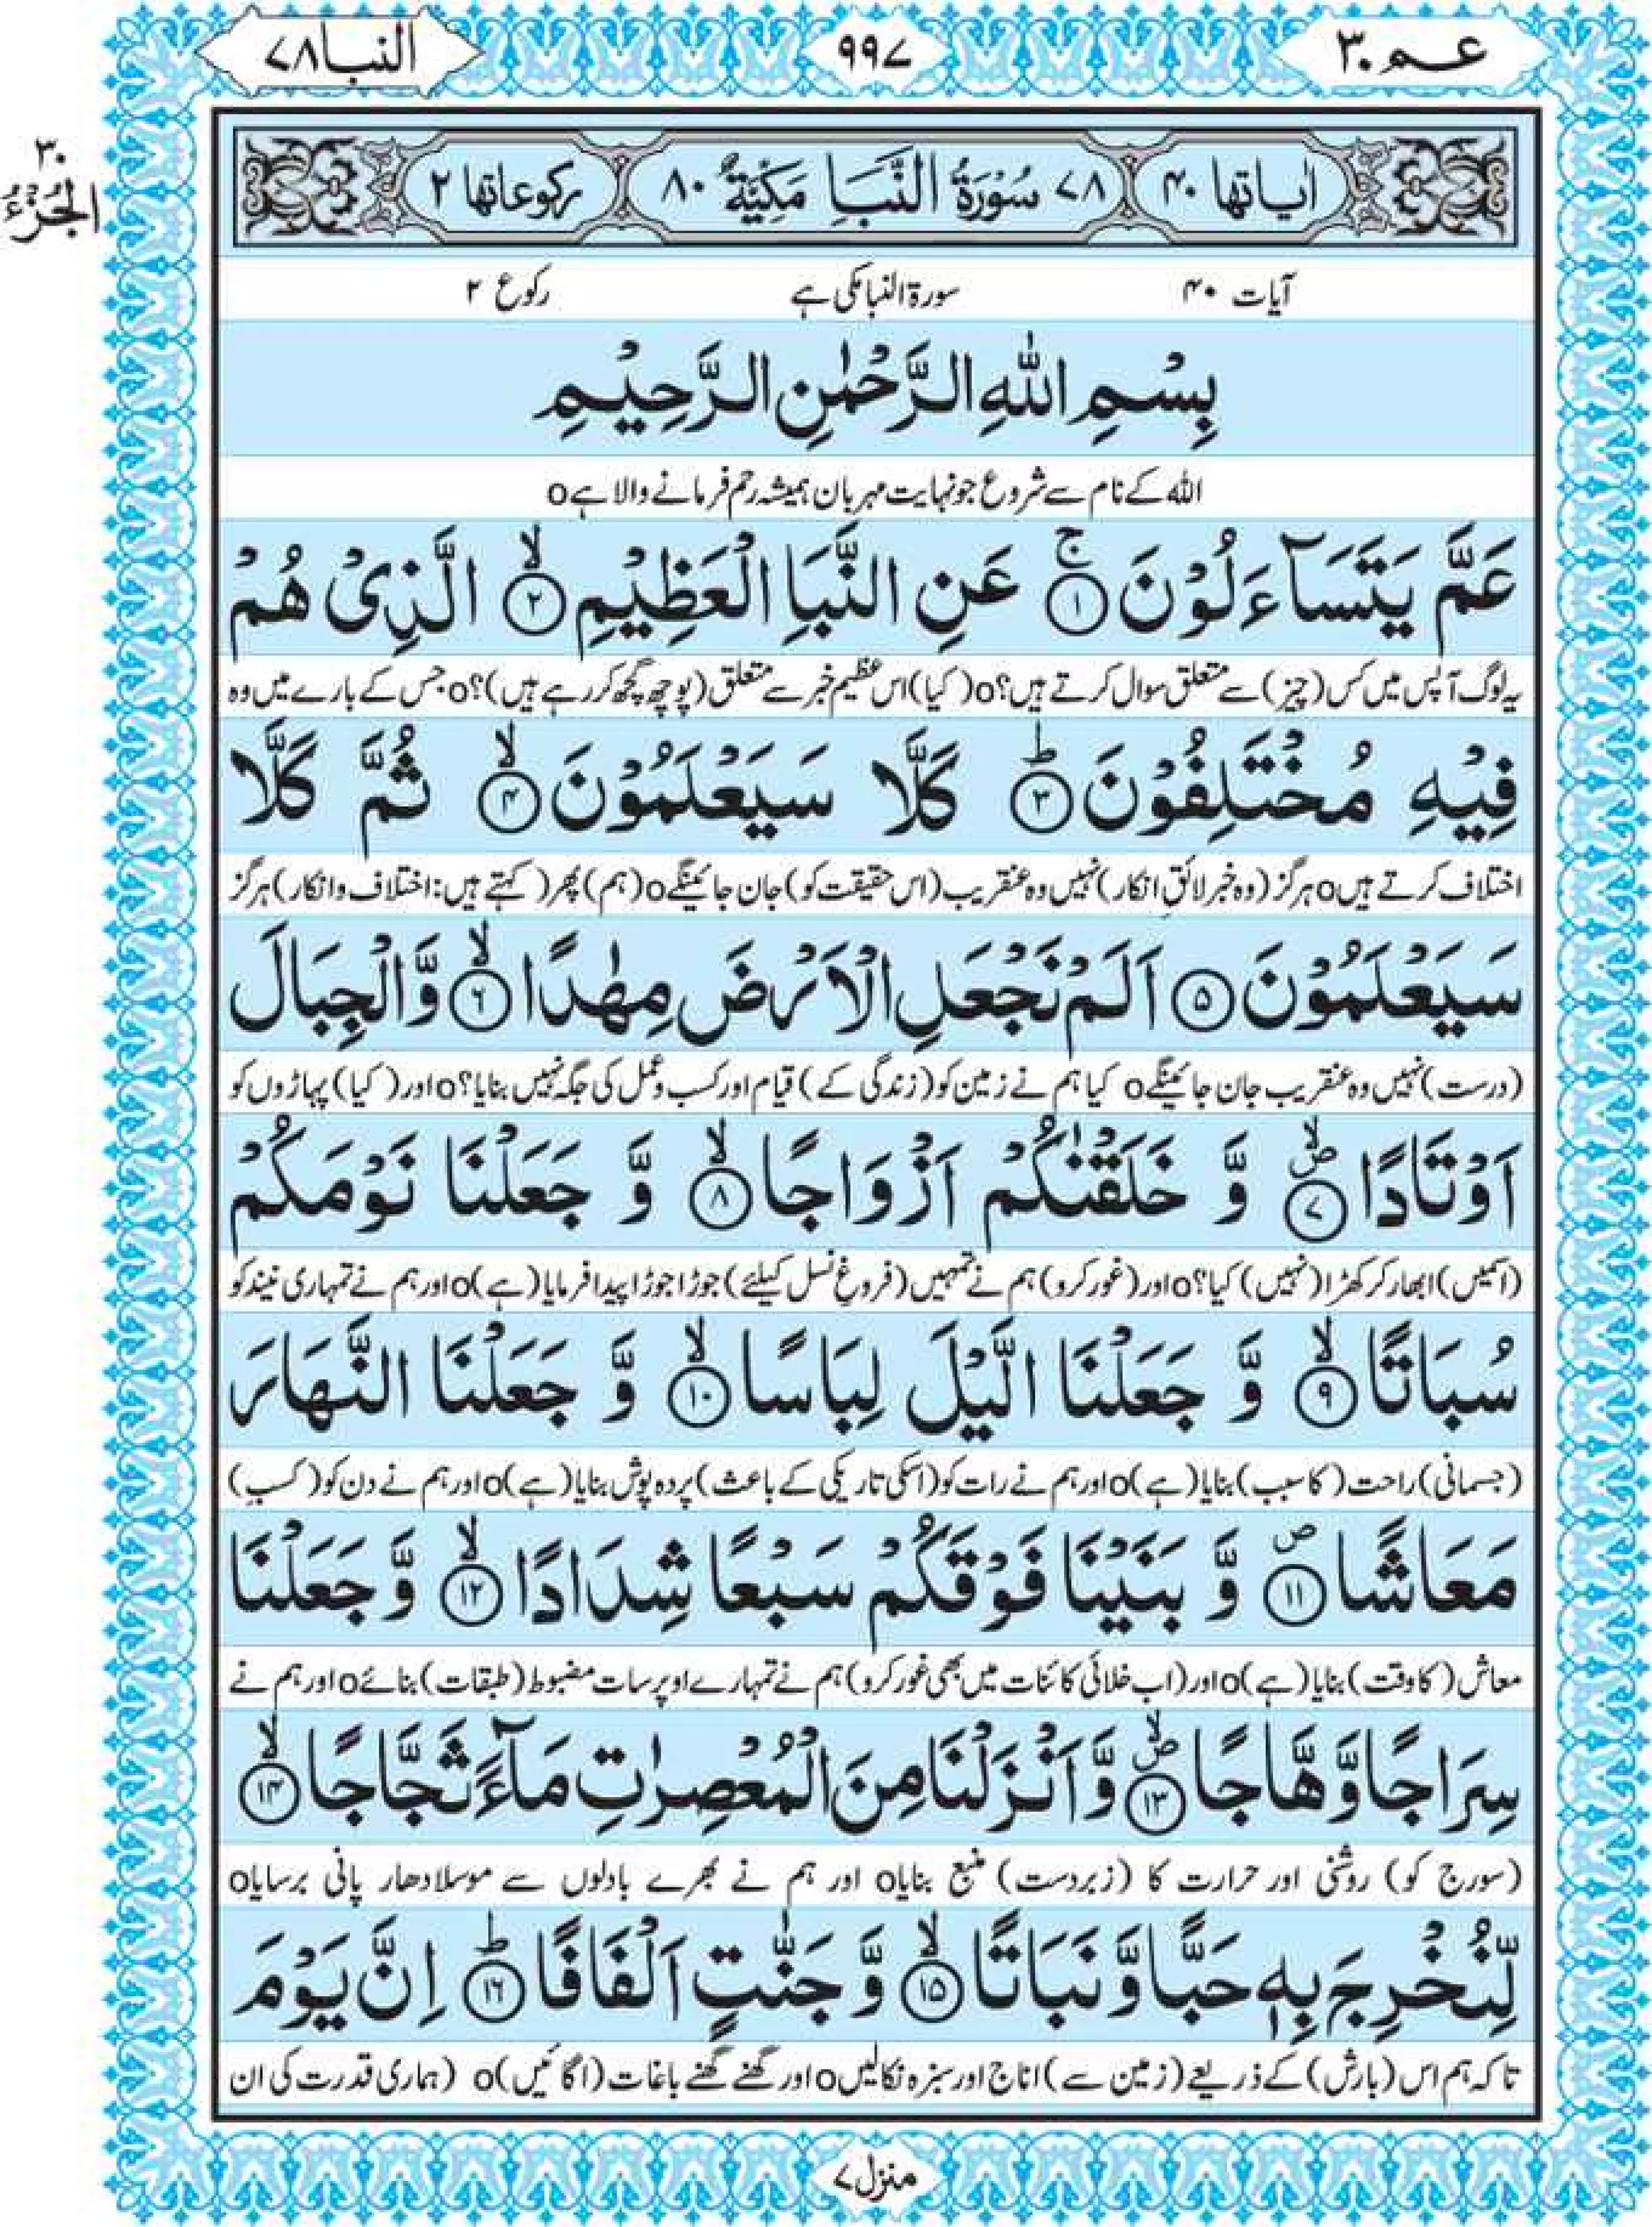 عـم ٣٠
٩٩٧
النبا ٧٨
٣٠
الجُزْءُ
اٰیاتها ٤٠ ٧٨ سُوْرَةُ النَّبَاِ مَكِّيَّةٌ ٨٠ ركوعاتها ٢
آیات ۴۰ سورۃ النبا مکی ہے رکوع ۲
بِسْمِ اللّٰهِ الرَّحْمٰنِ الرَّحِيْمِ
اللہ کے نام سے شروع جو نہایت مہربان ہمیشہ رحم فرمانے والا ہےo
عَمَّ يَتَسَآءَلُوْنَ ۚ‏﴿۱﴾ عَنِ النَّبَاِ الْعَظِيْمِ ۙ‏﴿۲﴾ الَّذِىْ هُمْ
یہ لوگ آپس میں کس (چیز) سے متعلق سوال کرتے ہیں؟o (کیا) اس عظیم خبر سے متعلق (پوچھ گچھ کر رہے ہیں)؟o جس کے بارے میں وہ
فِيْهِ مُخْتَلِفُوْنَ ؕ‏﴿۳﴾ كَلَّا سَيَعْلَمُوْنَ ۙ‏﴿۴﴾ ثُمَّ كَلَّا
اختلاف کرتے ہیںo ہرگز (وہ خبر لائقِ انکار) نہیں وہ عنقریب (اس حقیقت کو) جان جائینگےo (ہم) پھر (کہتے ہیں: اختلاف و انکار) ہرگز
سَيَعْلَمُوْنَ ﴿۵﴾ اَلَمْ نَجْعَلِ الْاَرْضَ مِهٰدًا ۙ‏﴿۶﴾ وَّالْجِبَالَ
(درست) نہیں وہ عنقریب جان جائینگےo کیا ہم نے زمین کو (زندگی کے) قیام اور کسب و عمل کی جگہ نہیں بنایا؟o اور (کیا) پہاڑوں کو
اَوْتَادًا ۪ۙ‏﴿۷﴾ وَّ خَلَقْنٰكُمْ اَزْوَاجًا ۙ‏﴿۸﴾ وَّ جَعَلْنَا نَوْمَكُمْ
(اسمیں) ابھار کر کھڑا (نہیں) کیا؟o اور (غور کرو) ہم نے تمہیں (فروغِ نسل کیلئے) جوڑا جوڑا پیدا فرمایا (ہے)o اور ہم نے تمہاری نیند کو
سُبَاتًا ۙ‏﴿۹﴾ وَّ جَعَلْنَا الَّيْلَ لِبَاسًا ۙ‏﴿۱۰﴾ وَّ جَعَلْنَا النَّهَارَ
(جسمانی) راحت (کا سبب) بنایا (ہے)o اور ہم نے رات کو (اسکی تاریکی کے باعث) پردہ پوش بنایا (ہے)o اور ہم نے دن کو (کسبِ)
مَعَاشًا ۪‏﴿۱۱﴾ وَّ بَنَيْنَا فَوْقَكُمْ سَبْعًا شِدَادًا ۙ‏﴿۱۲﴾ وَّ جَعَلْنَا
معاش (کا وقت) بنایا (ہے)o اور (اب خلائی کائنات میں بھی غور کرو) ہم نے تمہارے اوپر سات مضبوط (طبقات) بنائےo اور ہم نے
سِرَاجًا وَّهَّاجًا ۪ۙ‏﴿۱۳﴾ وَّ اَنْزَلْنَا مِنَ الْمُعْصِرٰتِ مَآءً ثَجَّاجًا ۙ‏﴿۱۴﴾
(سورج کو) روشنی اور حرارت کا (زبردست) منبع بنایاo اور ہم نے بھرے بادلوں سے موسلادھار پانی برسایاo
لِّنُخْرِجَ بِهٖ حَبًّا وَّ نَبَاتًا ۙ‏﴿۱۵﴾ وَّ جَنّٰتٍ اَلْفَافًا ؕ‏﴿۱۶﴾ اِنَّ يَوْمَ
تاکہ ہم اس (بارش) کے ذریعے (زمین سے) اناج اور سبزہ نکالیںo اور گھنے گھنے باغات (اگائیں)o (ہماری قدرت کی ان
منزل ٧